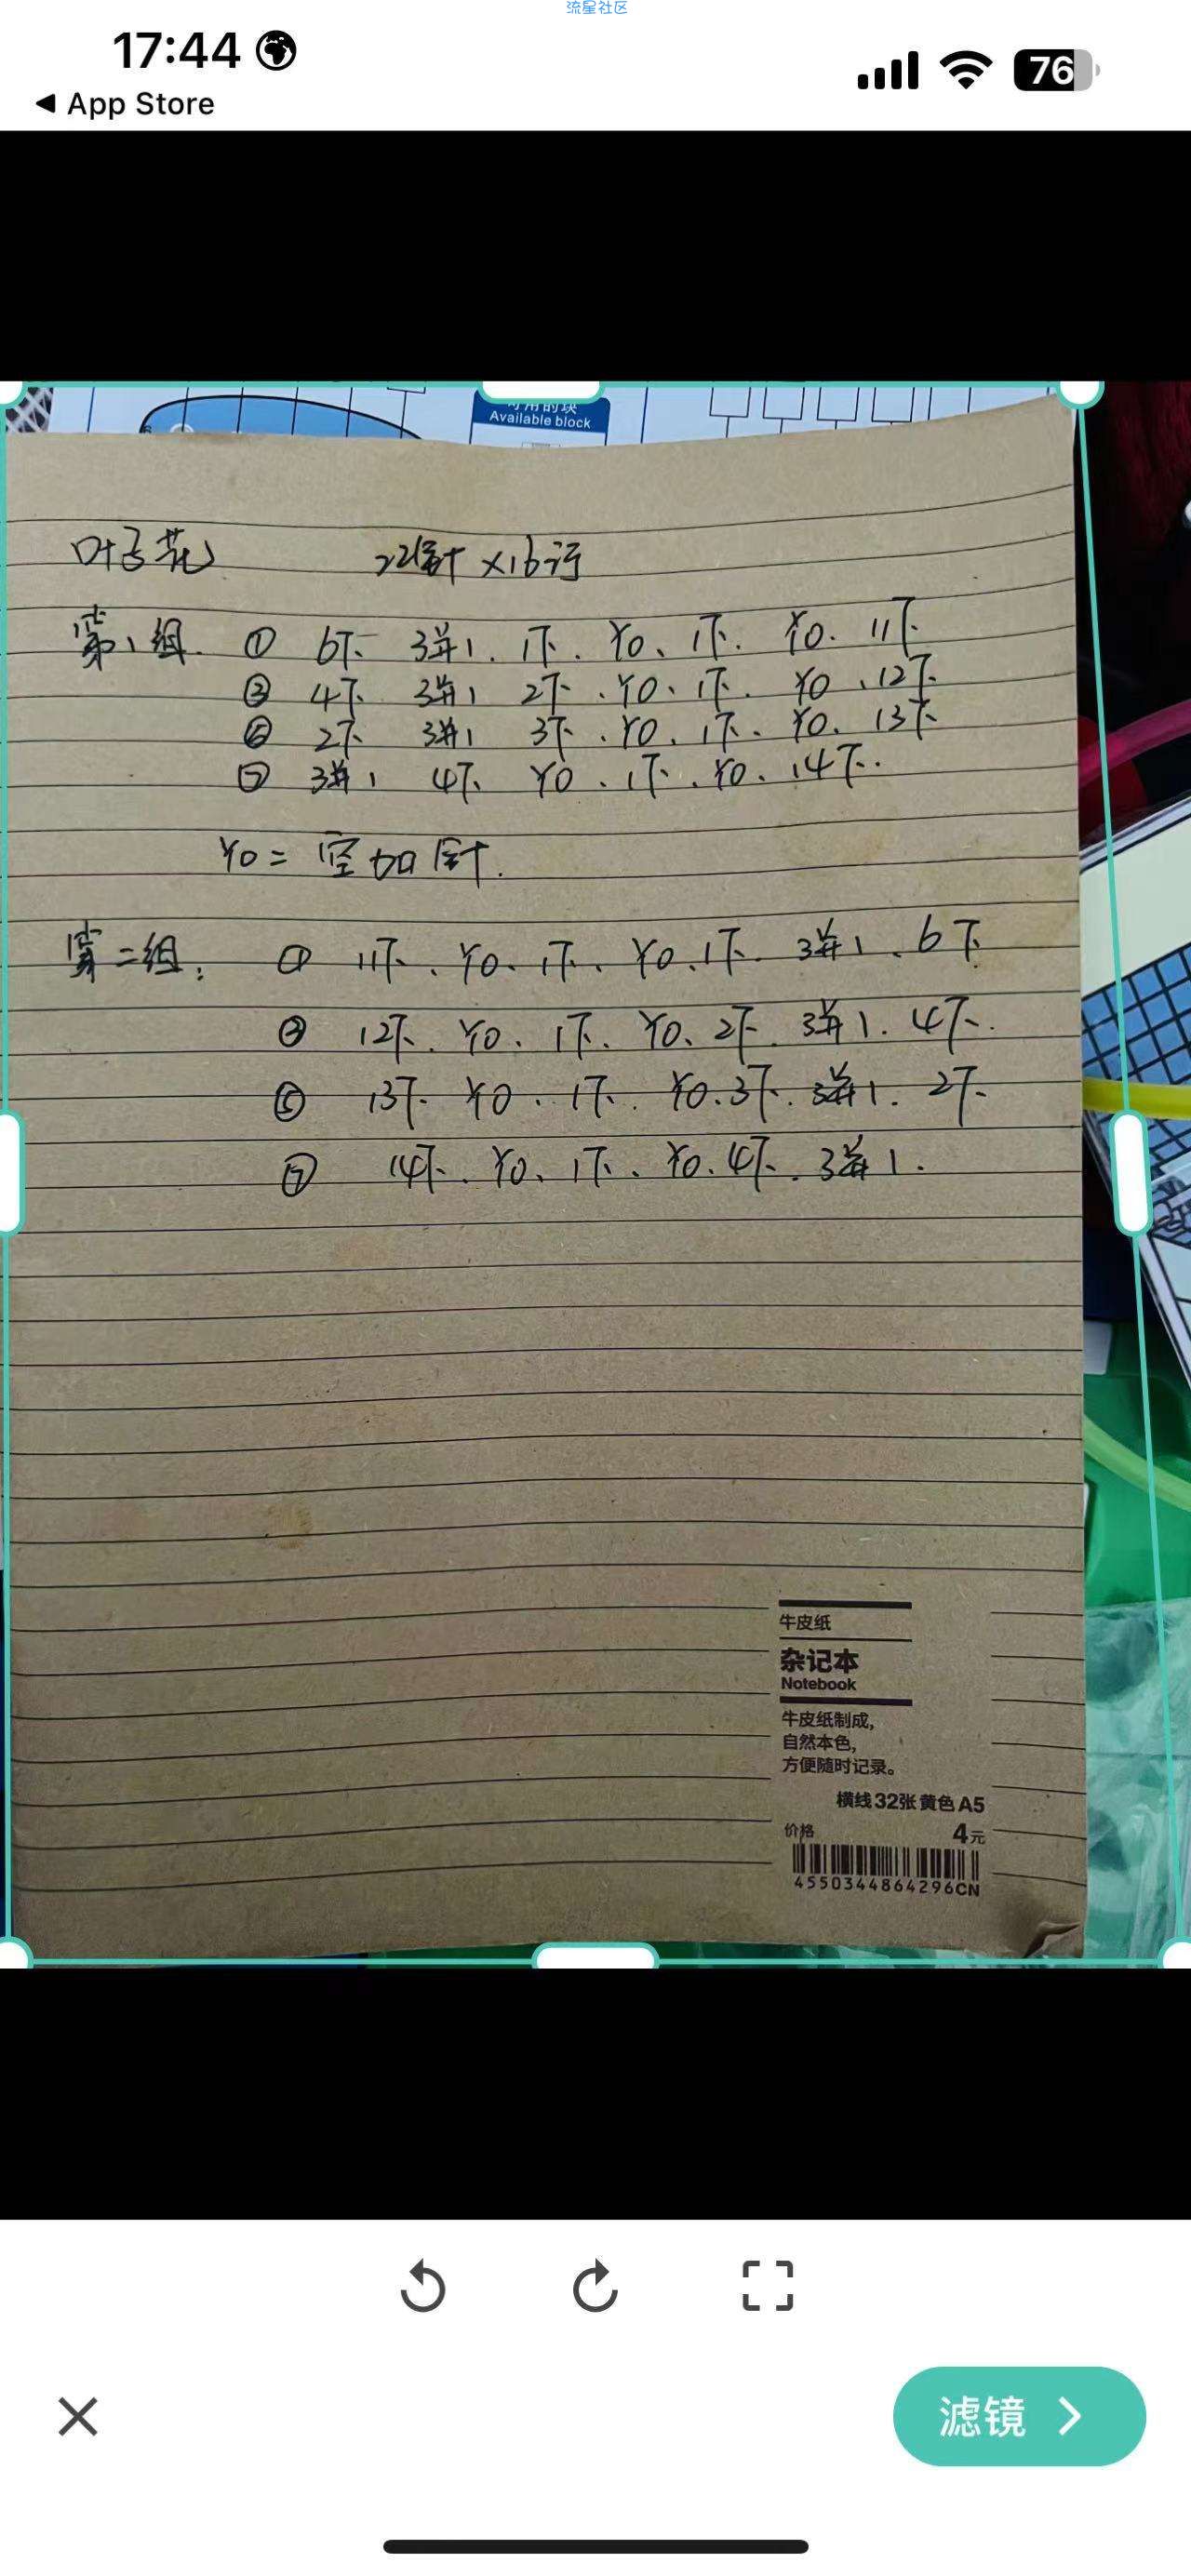 流星社区
17:44
76
◀ App Store
可用的块
Available block
叶子花 22针×16行
第1组. ① 6下 3并1. 1下. YO、1下. YO. 11下
③ 4下 3并1 2下.YO、1下. YO、12下
⑤ 2下 3并1 3下.YO.1下、YO、13下
⑦ 3并1 4下 YO、1下.YO、14下.
YO= 空加针.
第二组: ① 11下、YO、1下、YO、1下. 3并1、6下
③ 12下. YO、1下、YO、2下. 3并1. 4下.
⑤ 13下. YO、1下. YO.3下. 3并1. 2下.
⑦ 14下、YO、1下、YO.4下. 3并1.
牛皮纸
杂记本
Notebook
牛皮纸制成,
自然本色,
方便随时记录。
横线32张黄色A5
价格 4元
4550344864296CN
滤镜